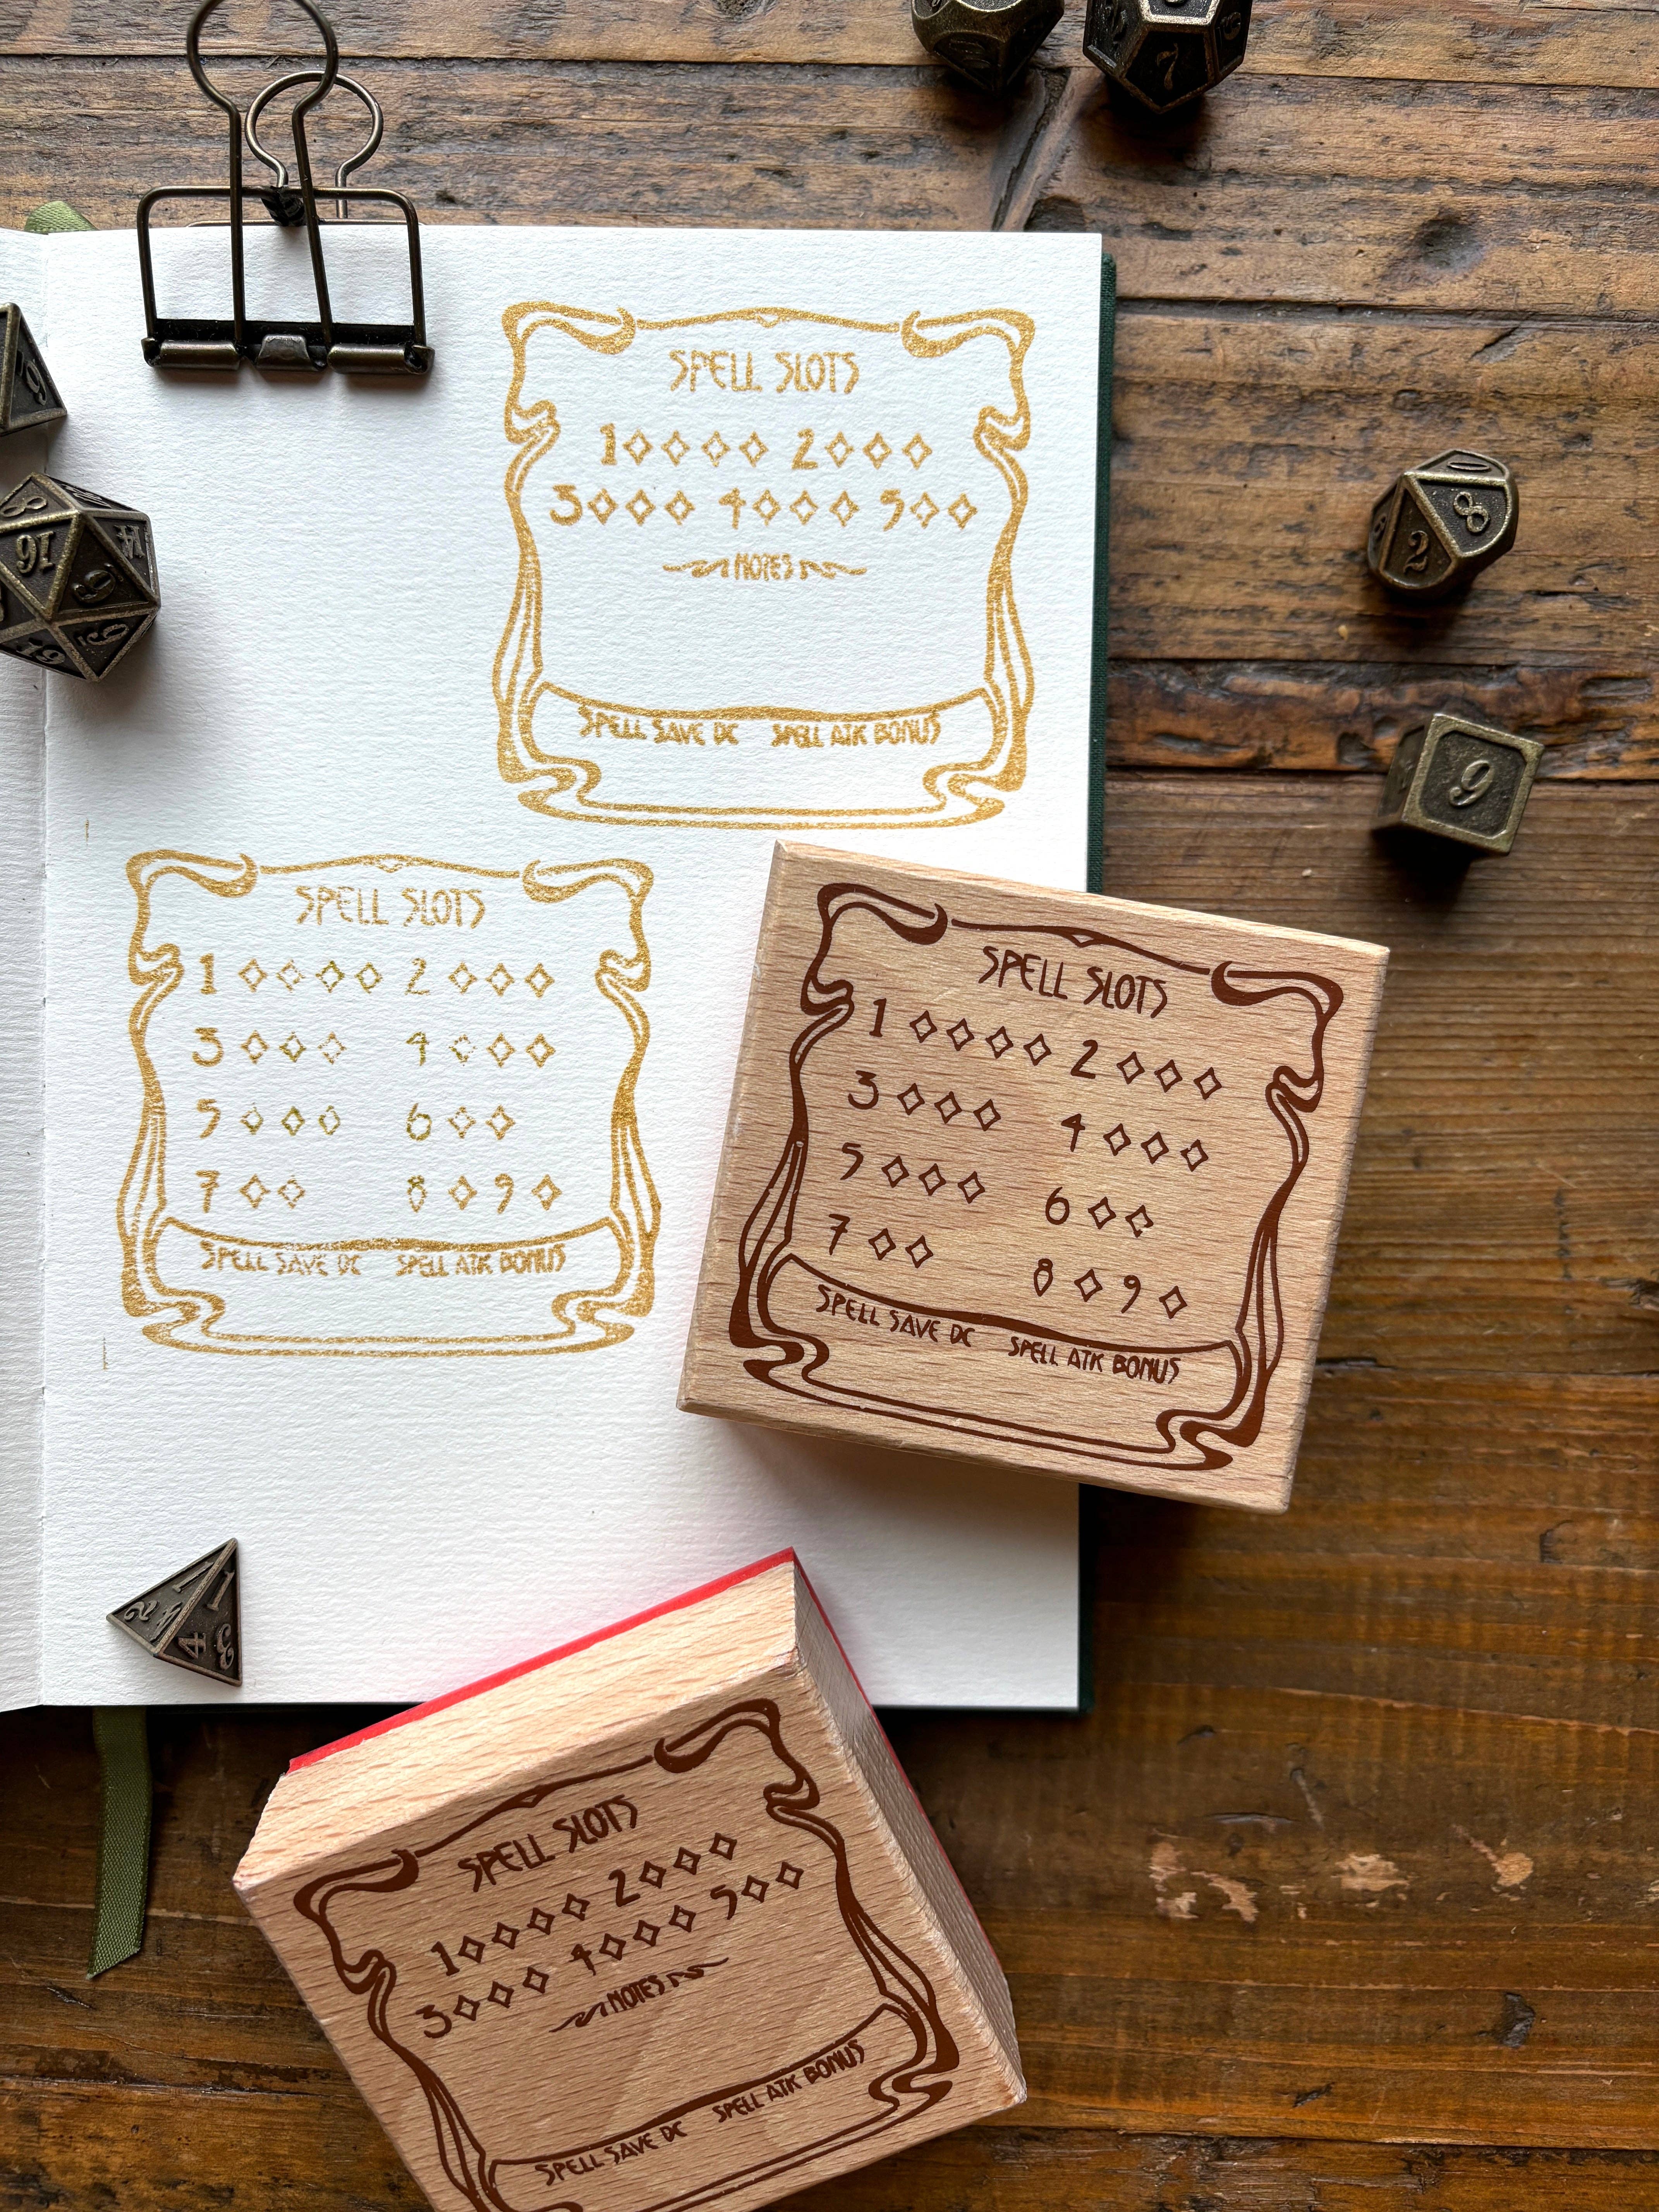 SPELL SLOTS
1◇◇◇◇ 2◇◇◇
3◇◇◇ 4◇◇◇ 5◇◇
NOTES
SPELL SAVE DC SPELL ATK BONUS
SPELL SLOTS
1 ◇◇◇◇ 2 ◇◇◇
3 ◇◇◇ 4 ◇◇◇
5 ◇◇◇ 6 ◇◇
7 ◇◇ 8 ◇ 9 ◇
SPELL SAVE DC SPELL ATK BONUS
SPELL SLOTS
1 ◇◇◇◇ 2 ◇◇◇
3 ◇◇◇ 4 ◇◇◇
5 ◇◇◇ 6 ◇◇
7 ◇◇ 8 ◇ 9 ◇
SPELL SAVE DC SPELL ATK BONUS
SPELL SLOTS
1◇◇◇◇ 2◇◇◇
3◇◇◇ 4◇◇◇ 5◇◇
NOTES
SPELL SAVE DC SPELL ATK BONUS
7
8
2
9
16
9
19
1
2
4
4
3